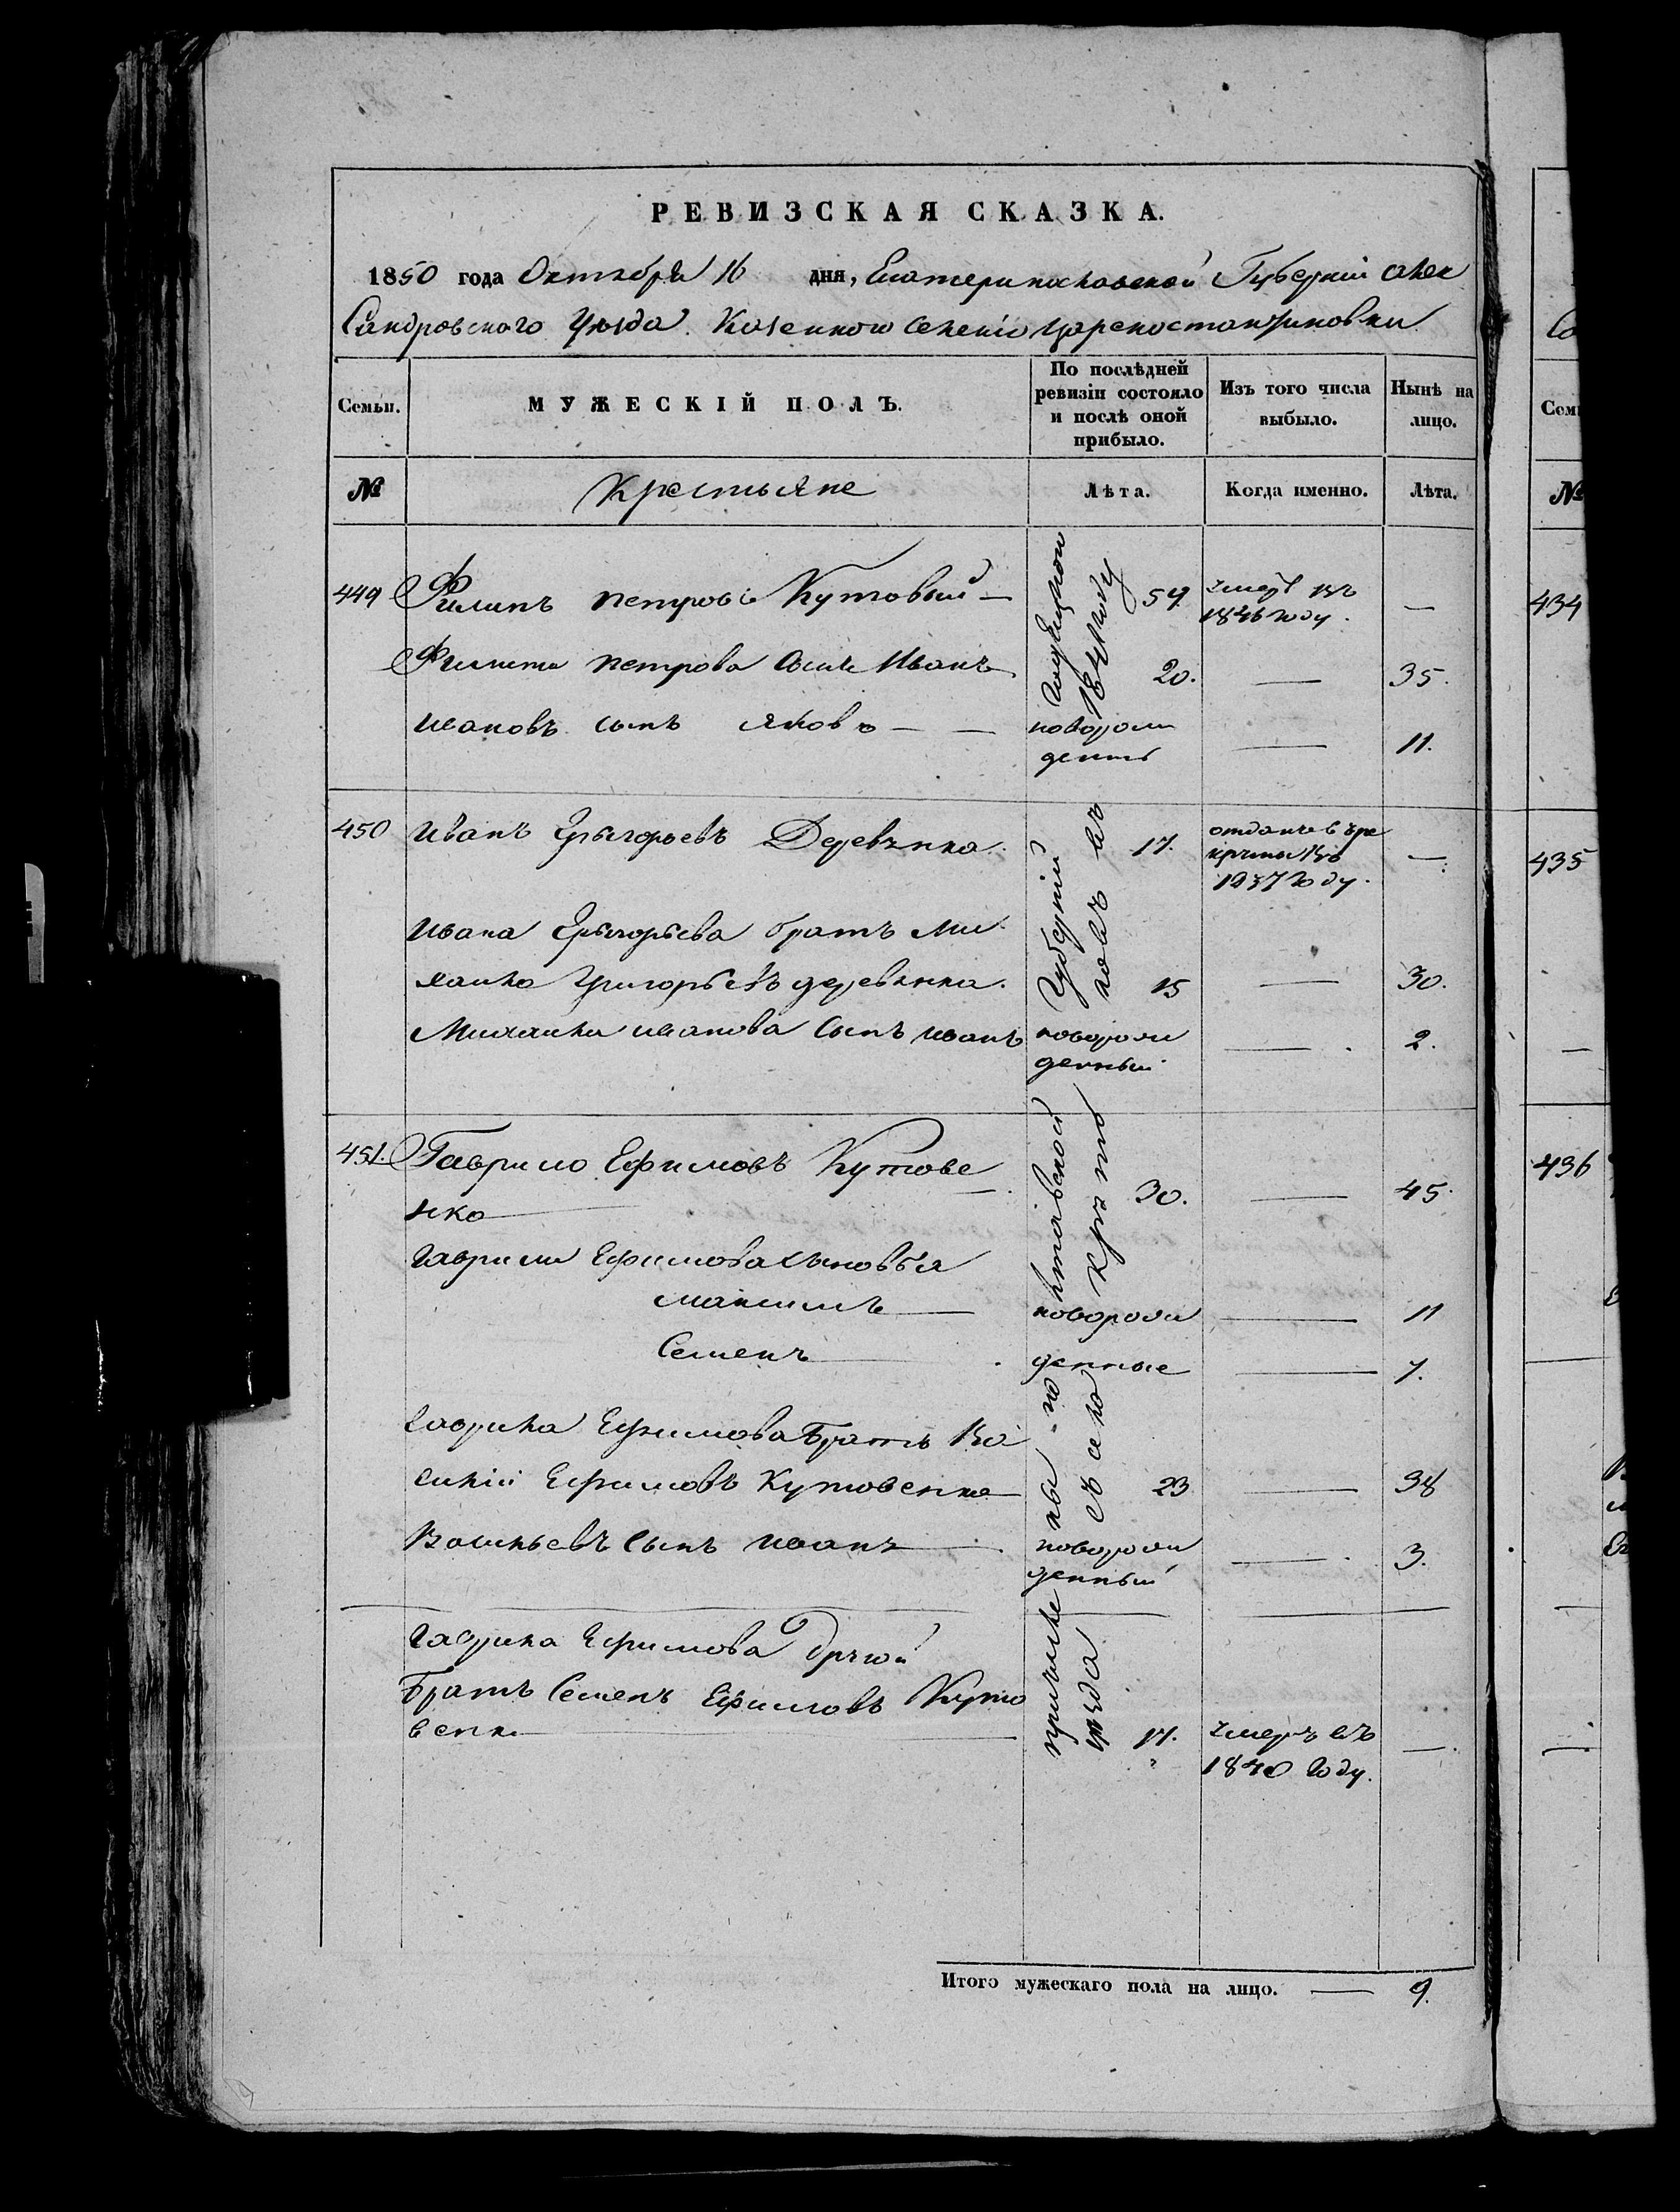 РЕВИЗСКАЯ СКАЗКА.
1850 года Октября 16 дня, Екатеринославской Губерніи Алек
сандровского Уезда. Казенного Селенія Царекостантиновки
Семьи.
МУЖЕСКІЙ ПОЛЪ.
По послѣдней ревизіи состояло и послѣ оной прибыло.
Изъ того числа выбыло.
Нынѣ на лицо.
№
Крестьяне
Лѣта.
Когда именно.
Лѣта.
449 Филипъ Петровъ Кутовый — 59 умеръ въ —
1846 году.
Филипа Петрова сынъ Иванъ 20. — 35.
Ивановъ сынъ Яковъ — — новорож — 11.
денъ
1841 году
450 Иванъ Грыгорьевъ Деревянко. 17. отданъ въ ре —
круты въ
1837 году.
Ивана Грыгорьева братъ Ми
хайло Григорьевъ деревянко. 15 — 30.
Михайли иванова Сынъ иванъ новорож — 2.
денный
Губерніи
451. Гаврило Ефимовъ Кутове
нко — 30. — 45.
Гаврили Ефимова сыновья
Максимъ — новорож — 11
Семенъ — денные — 7.
Гаврила Ефимова Братъ Ва
силій Ефимовъ Кутовенко 23 — 38
Васильевъ Сынъ иванъ — новорож — 3.
денный
Гаврила Ефимова другой
Братъ Семенъ Ефимовъ Куто
венко — 17. умеръ въ —
1840 году.
уезда
Итого мужескаго пола на лицо. — 9.
Со
Сем
№
434
435
436